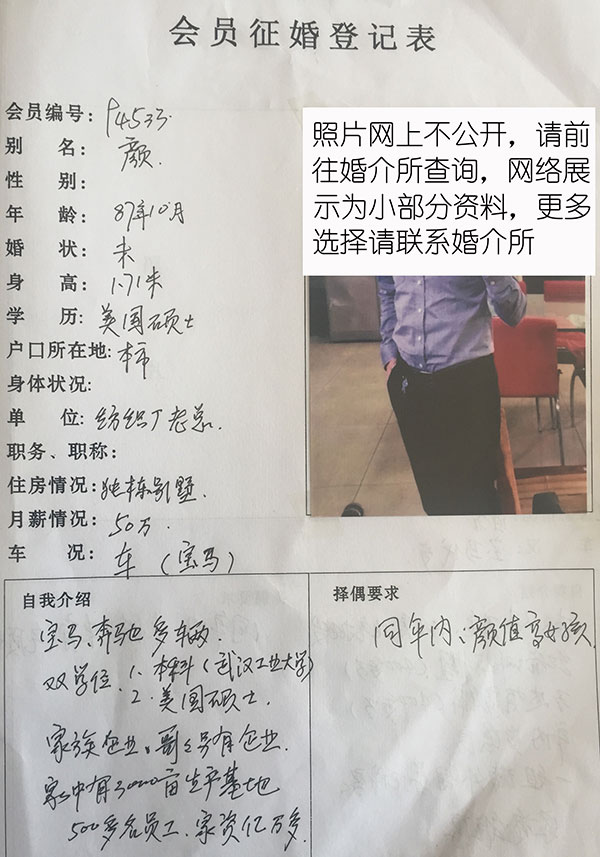 会员征婚登记表
会员编号: 94533
别 名: 颜.
性 别:
年 龄: 87年10月
婚 状: 未
身 高: 1.71米
学 历: 美国硕士
户口所在地: 本市
身体状况:
单 位: 纺织厂老总.
职务、职称:
住房情况: 独栋别墅.
月薪情况: 50万.
车 况: 车（宝马）
照片网上不公开，请前
往婚介所查询，网络展
示为小部分资料，更多
选择请联系婚介所
自我介绍
宝马、奔驰多车辆.
双学位. 1. 本科（武汉工业大学）
2. 美国硕士.
家族企业。 另有企业.
家中有3000亩生产基地
500多名员工. 家资亿万多.
择偶要求
同年内: 颜值高女孩.